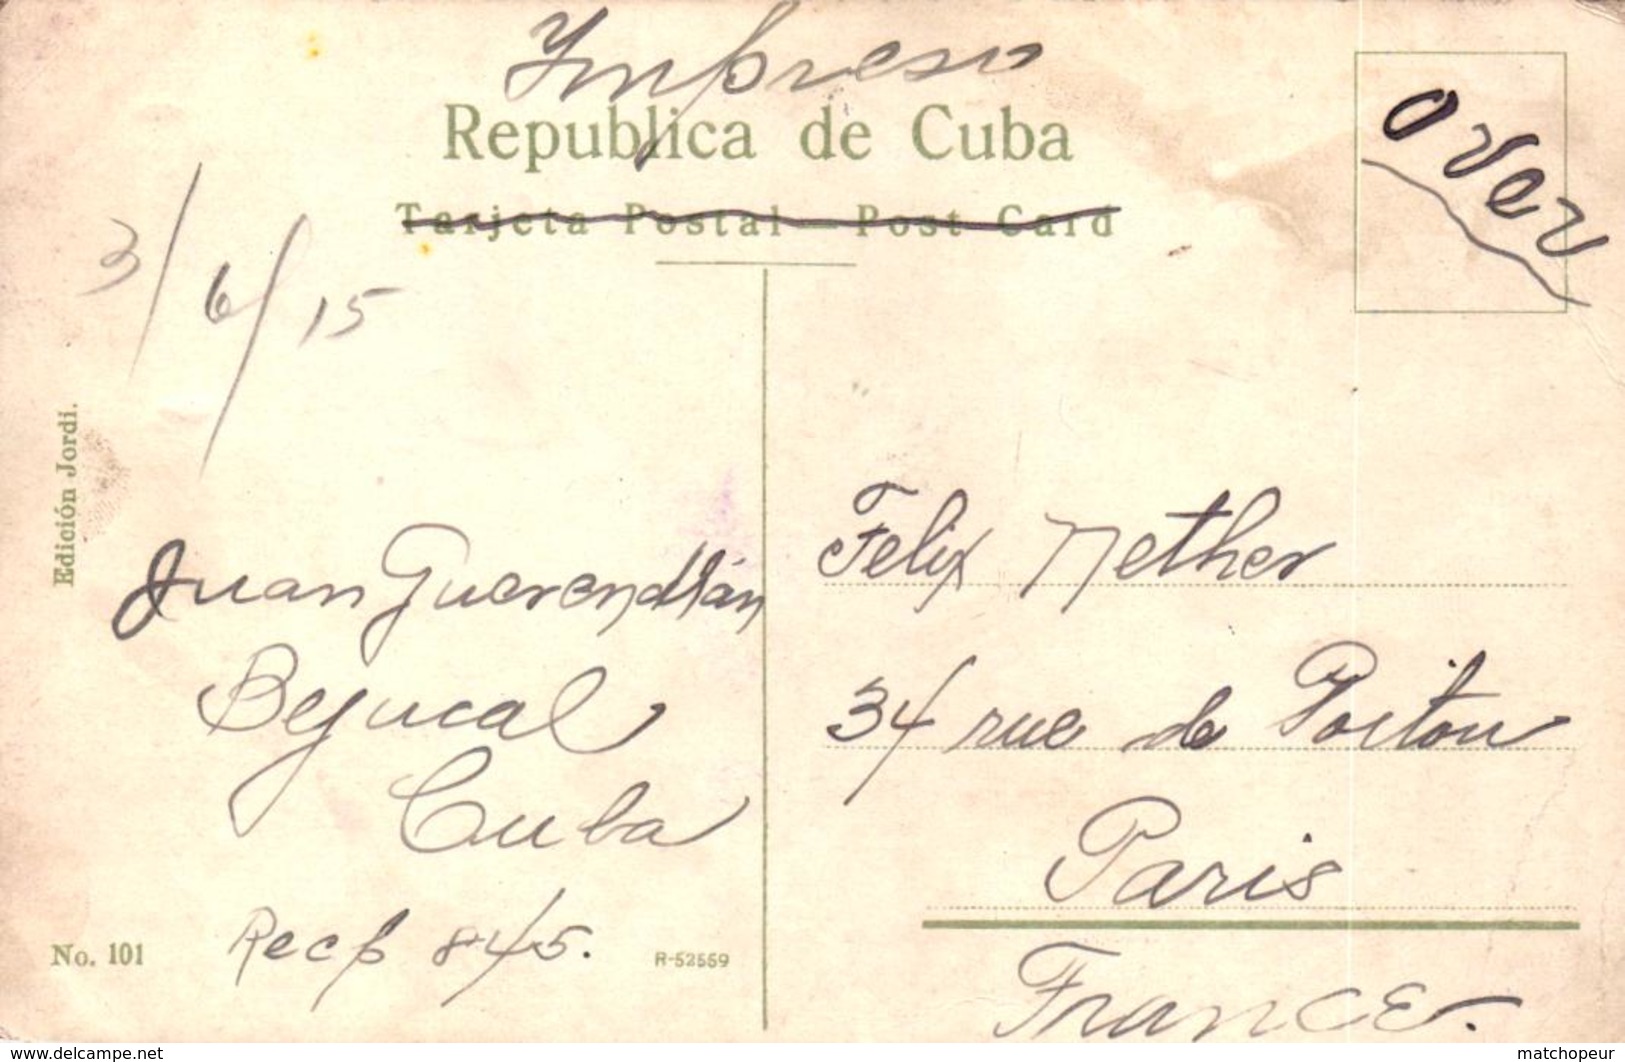 Impreso
Republica de Cuba
Tarjeta Postal — Post Card
over
3/6/15
Edición Jordi.
Juan Guerendián
Bejucal
Cuba
Recp 845.
No. 101
R-52559
Felix Nether
34 rue de Poitou
Paris
France.
www.delcampe.net
matchopeur